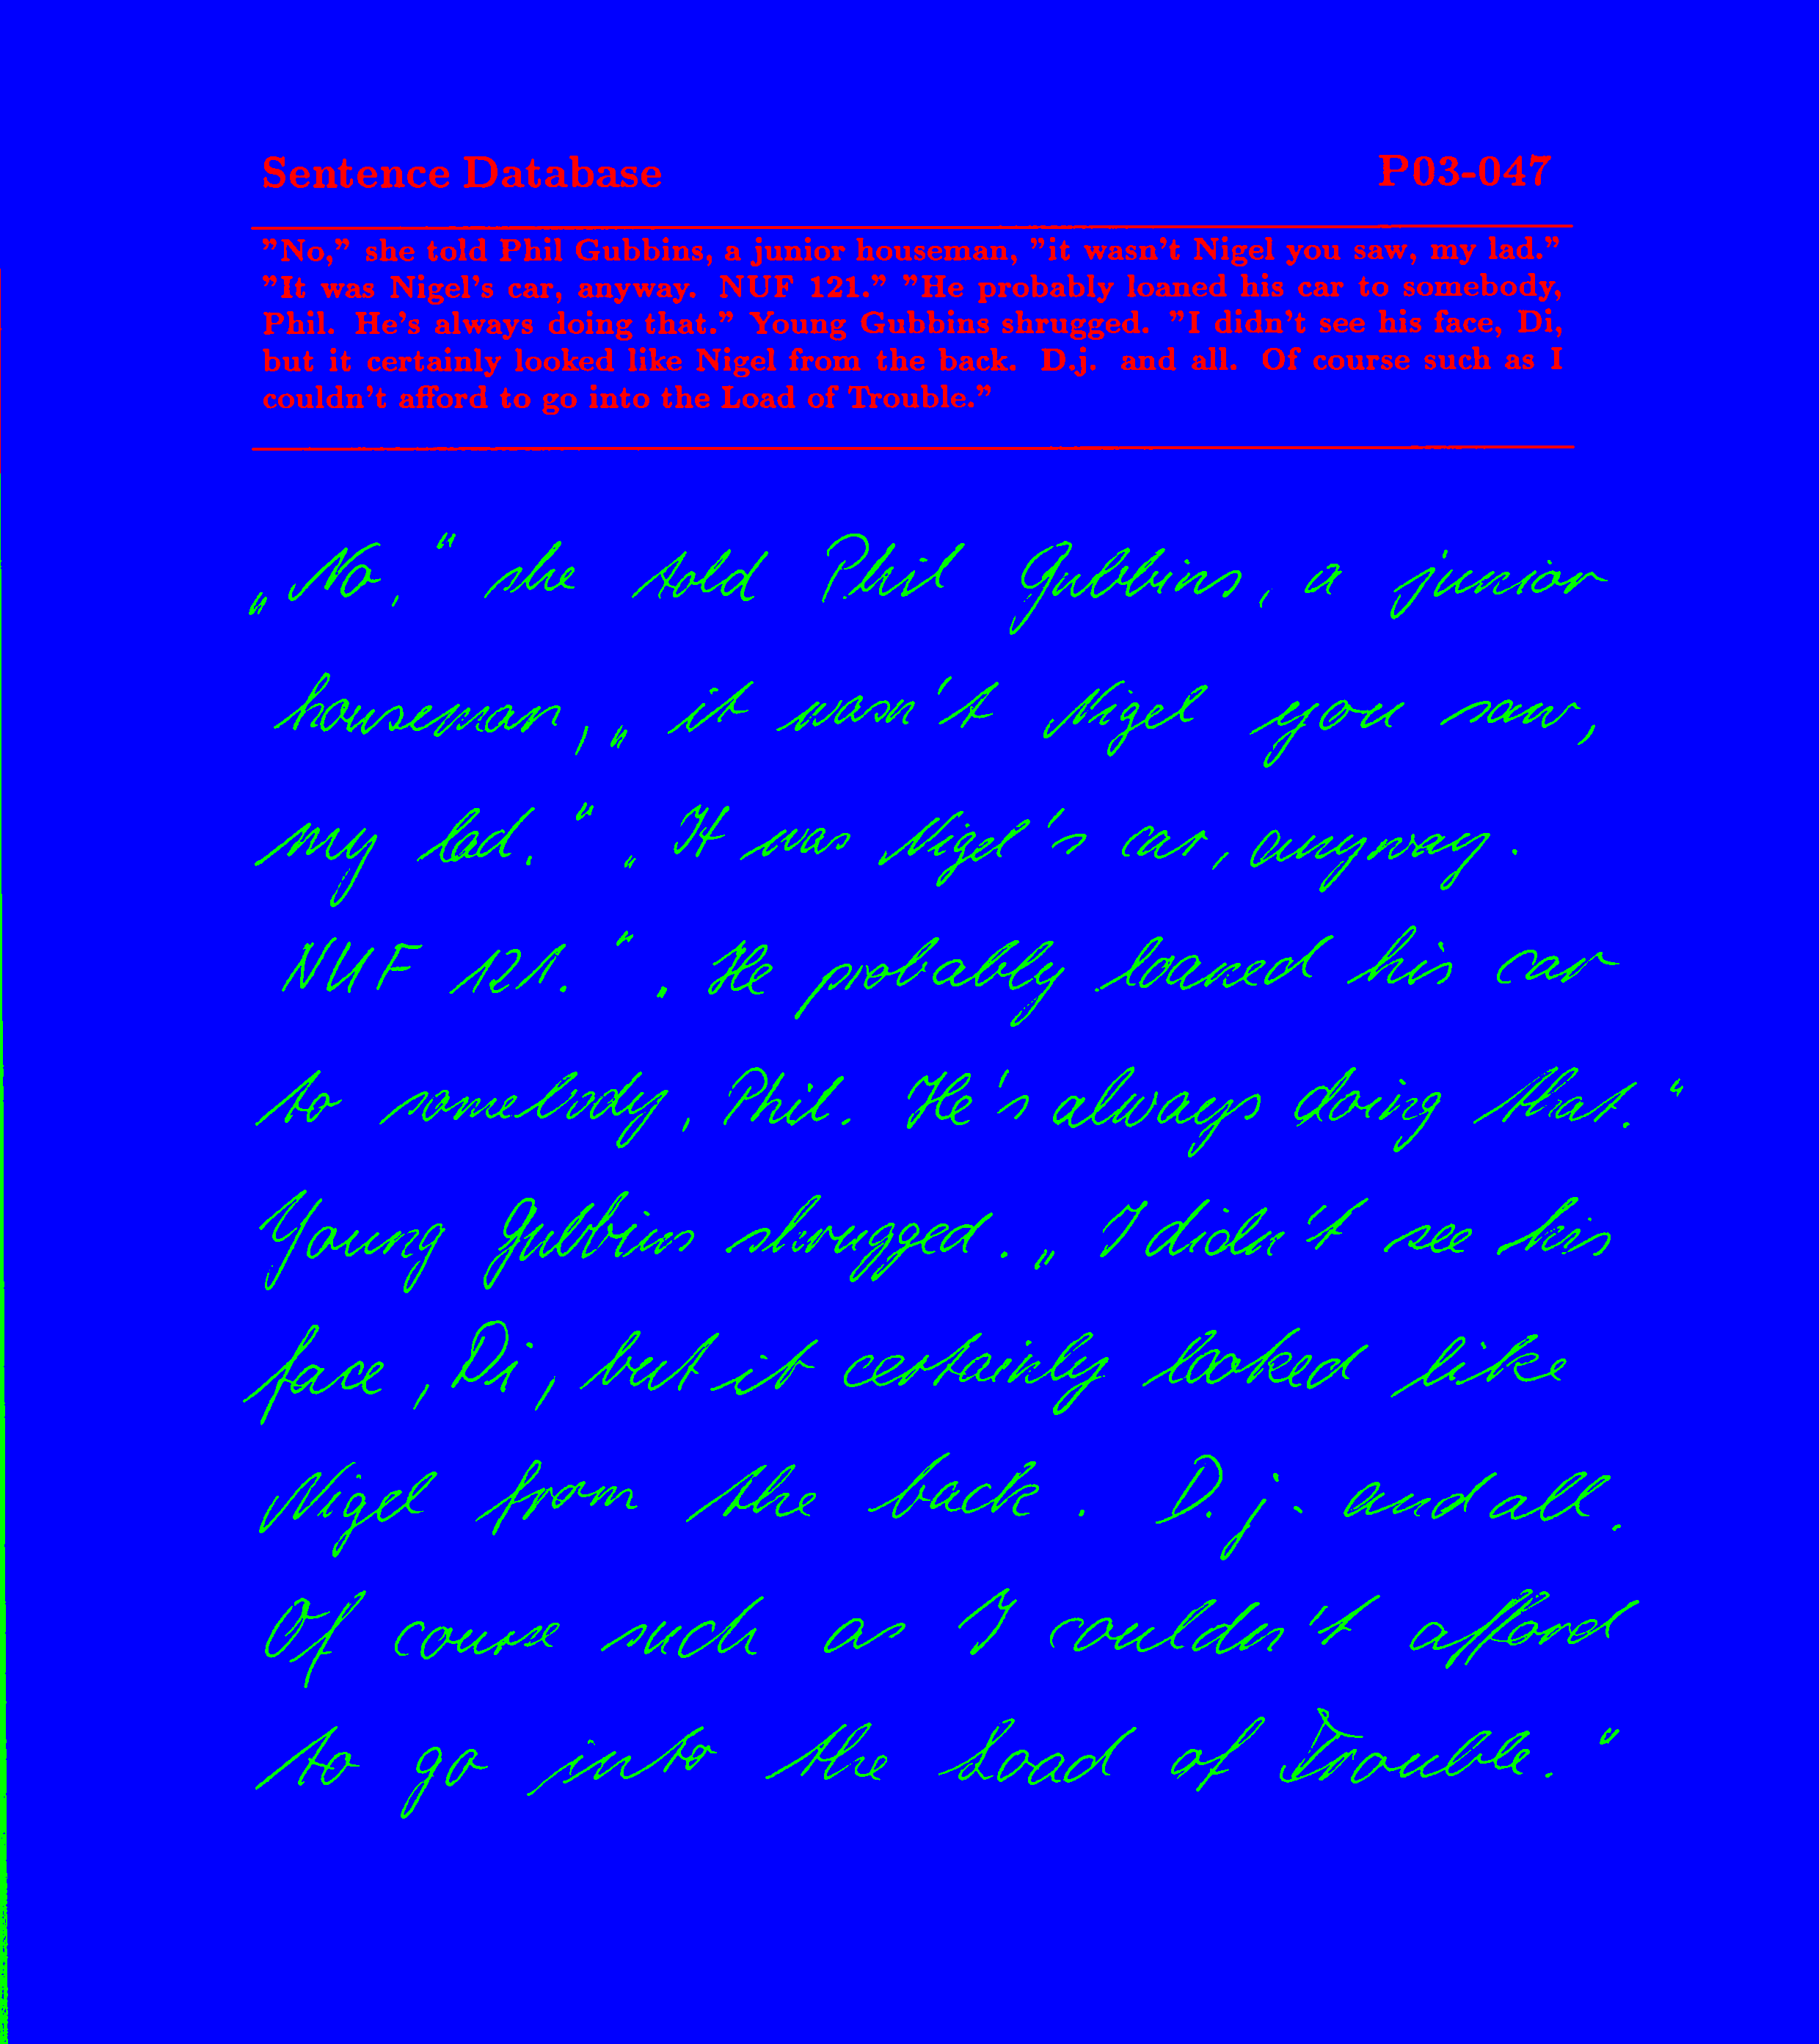 Sentence Database P03-047
"No," she told Phil Gubbins, a junior houseman, "it wasn't Nigel you saw, my lad."
"It was Nigel's car, anyway. NUF 121." "He probably loaned his car to somebody,
Phil. He's always doing that." Young Gubbins shrugged. "I didn't see his face, Di,
but it certainly looked like Nigel from the back. D.j. and all. Of course such as I
couldn't afford to go into the Load of Trouble."
„No," she told Phil Gubbins, a junior
houseman, „it wasn't Nigel you saw,
my lad." „It was Nigel's car, anyway.
NUF 121." „He probably loaned his car
to somebody, Phil. He's always doing that."
Young Gubbins shrugged. „I didn't see his
face, Di, but it certainly looked like
Nigel from the back. D.j. and all.
Of course such as I couldn't afford
to go into the Load of Trouble."